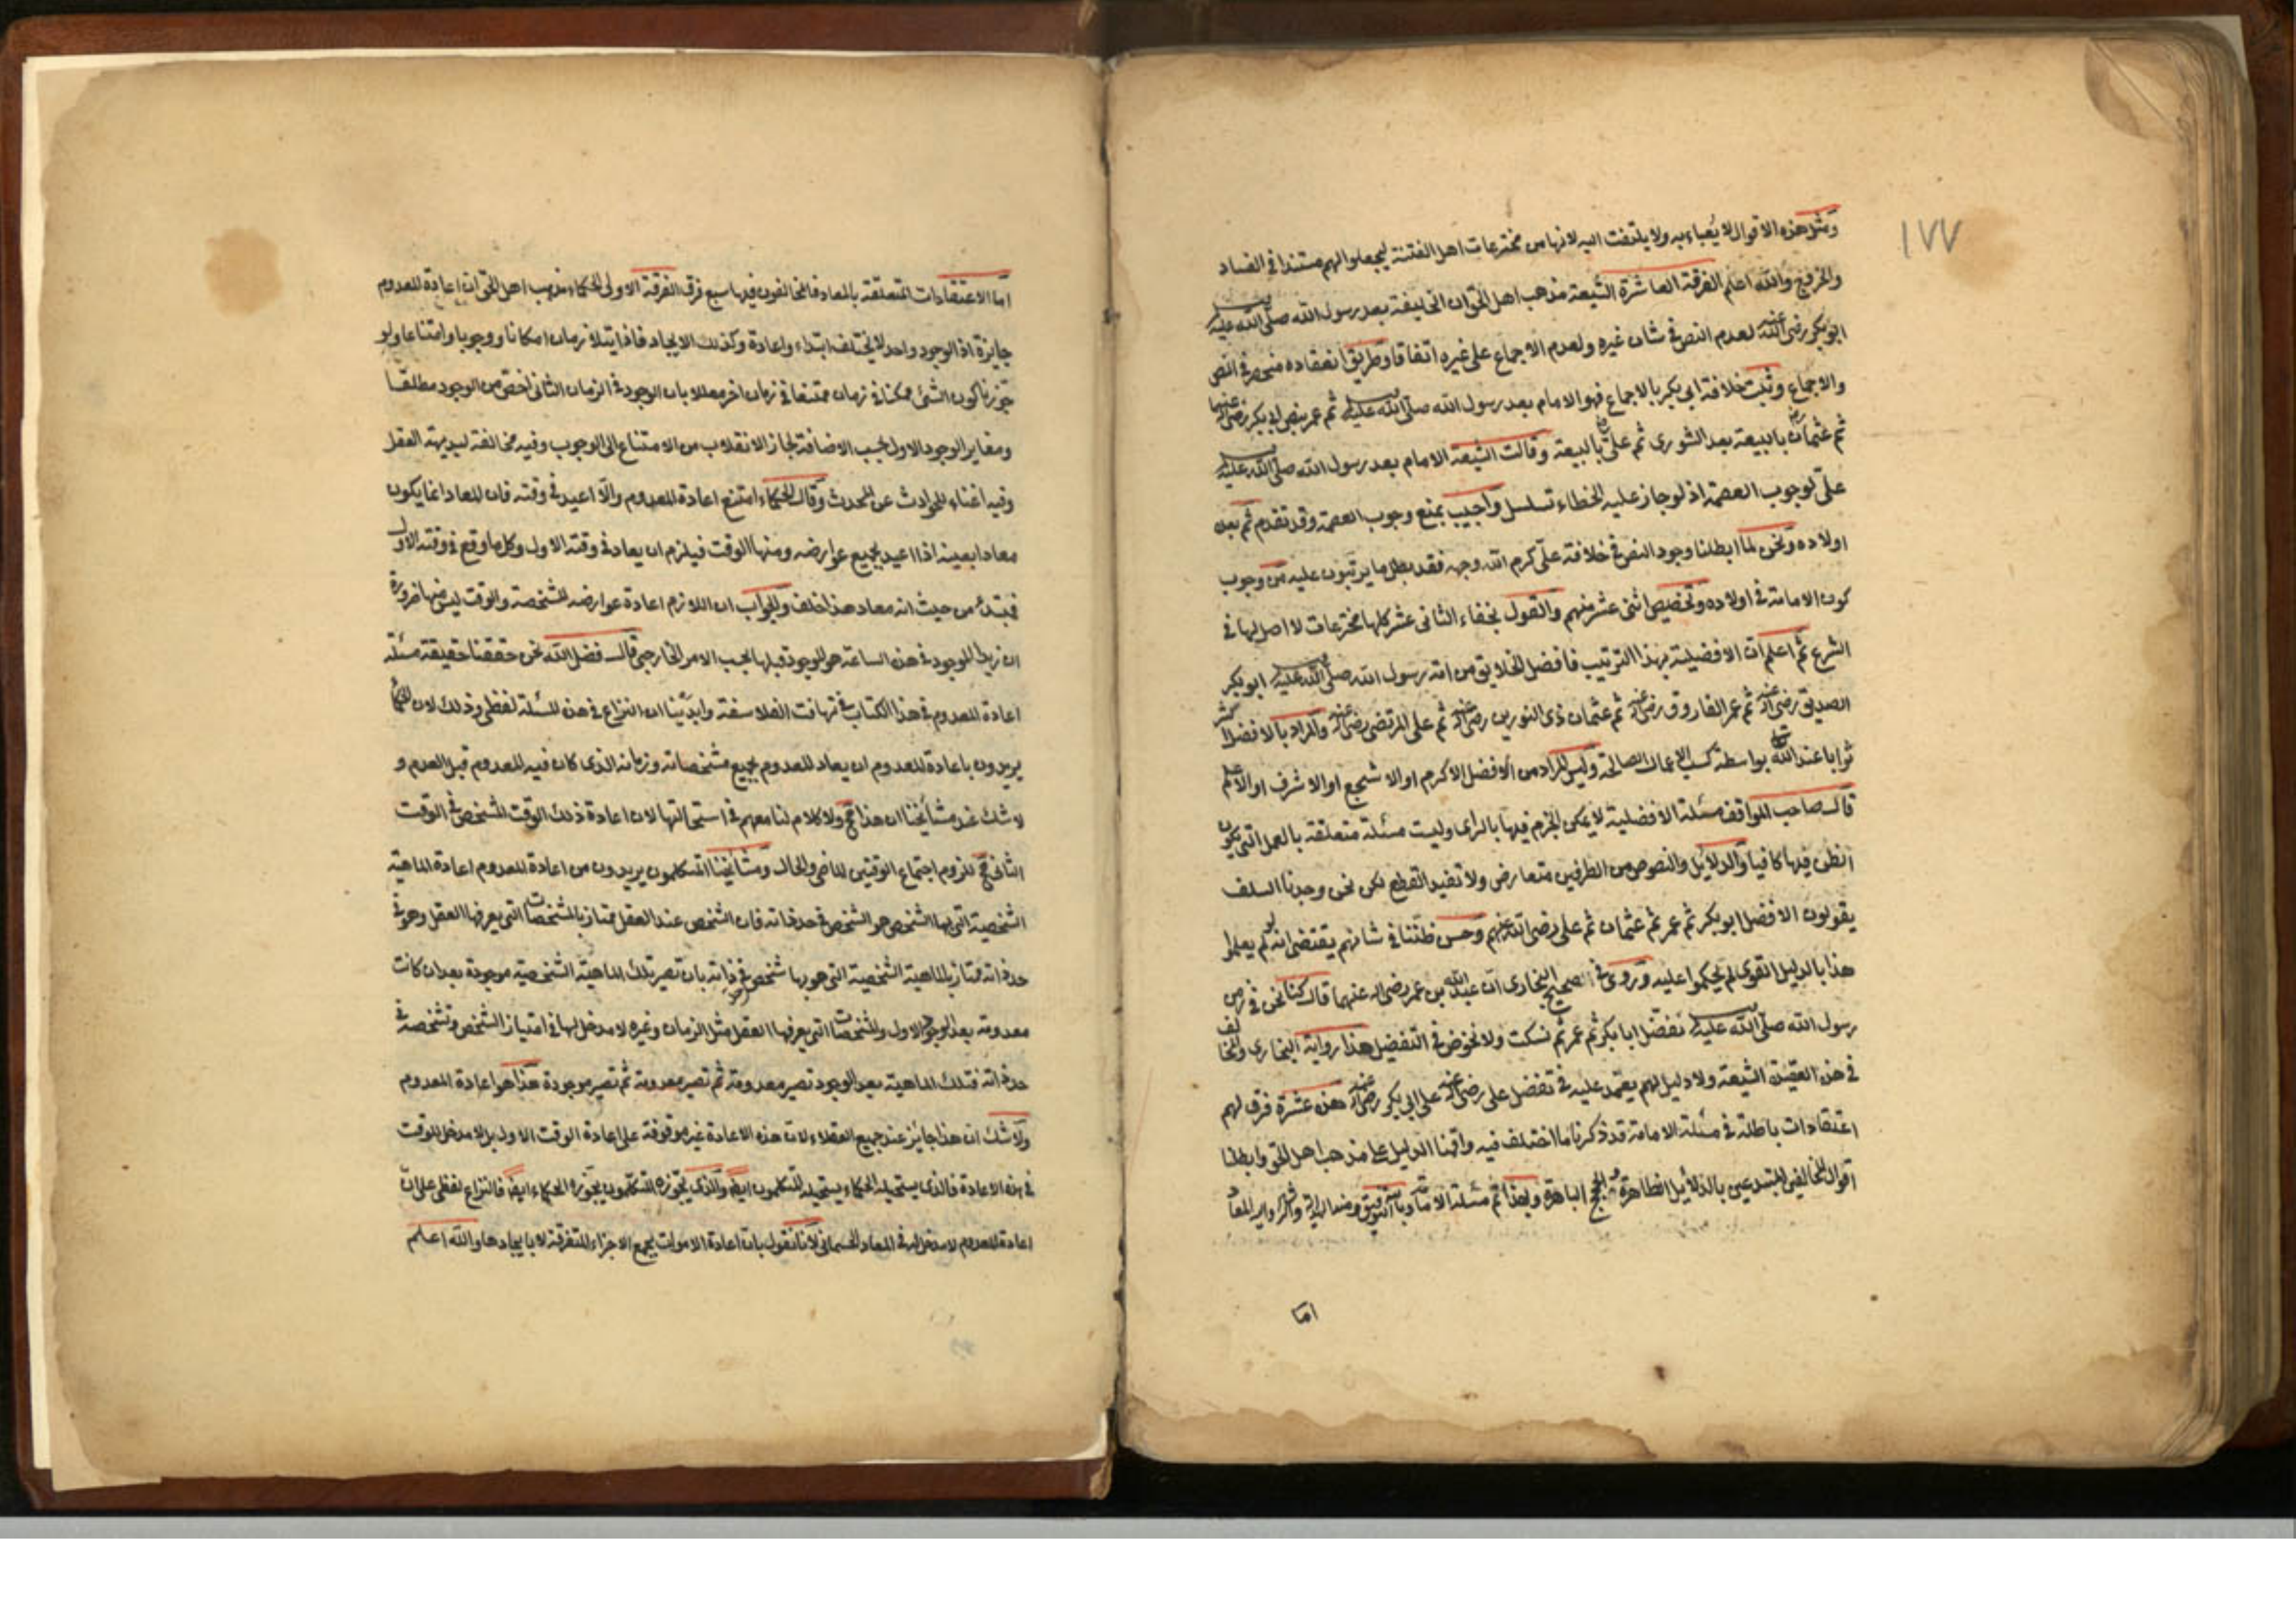 ١٧٧
ومثل هذه الاقوال لا يُعباء به ولا يلتفت اليه لانها من مخترعات اهل الفتنة ليجعلوا لهم مستندا في الفساد
والخروج والله اعلم الفرقة العاشرة الشيعة مذهب اهل الحق ان الخليفة بعد رسول الله صلى الله عليه وسلم
ابو بكر رضى الله عنه لعدم النص في شان غيره ولعدم الاجماع على غيره اتفاقا وطريق انعقاده منحصر في النص
والاجماع وثبت خلافة ابى بكر بالاجماع فهو الامام بعد رسول الله صلى الله عليه وسلم ثم عمر بنص ابى بكر رضى الله عنهما
ثم عثمان بالبيعة بعد الشورى ثم على بالبيعة وقالت الشيعة الامام بعد رسول الله صلى الله عليه وسلم
على لوجوب العصمة اذ لو جاز عليه الخطاء تسلسل واجيب بمنع وجوب العصمة وقد تقدم ثم بعده
اولاده ونحن لما ابطلنا وجود النص في خلافة على كرم الله وجهه فقد بطل ما يرتبون عليه من وجوب
كون الامامة في اولاده وتخصيص اثنى عشر منهم والقول بخفاء الثانى عشر كلها مخترعات لا اصل لها في
الشرع ثم اعلم ان الافضلية بهذا الترتيب فافضل الخلايق من امة رسول الله صلى الله عليه وسلم ابو بكر
الصديق رضى الله عنه ثم عمر الفاروق رضى الله عنه ثم عثمان ذى النورين رضى الله عنه ثم على المرتضى رضى الله عنه والمراد بالافضل اكثر
ثوابا عند الله بواسطة كسب الاعمال الصالحة وليس المراد من الافضل الاكرم او الا شجع او الا شرف او الاعلم
قال صاحب المواقف مسئلة الافضلية لا يمكن الجزم فيها بالراى وليست مسئلة متعلقة بالعمل التى يكون
الظن فيها كافيا والدلايل والنصوص من الطرفين متعارض ولا تفيد القطع لكن نحن وجدنا السلف
يقولون الافضل ابو بكر ثم عمر ثم عثمان ثم على رضى الله عنهم وحسن ظننا في شانهم يقتضى انه لو لم يعلموا
هذا بالدليل القوى لم يحكموا عليه وروى في الصحيح البخارى ان عبد الله بن عمر رضى الله عنهما قال كنا نحن في زمن
رسول الله صلى الله عليه وسلم نفضل ابا بكر ثم عمر ثم نسكت ولا نخوض في التفضيل هذا رواية البخارى والمخالف
في هذه العقيدة الشيعة ولا دليل لهم يعتمد عليه في تفضل على رضى الله عنه على ابى بكر رضى الله عنه هذه عشرة فرق لهم
اعتقادات باطلة في مسئلة الامامة قد ذكرنا ما اختلف فيه واقمنا الدليل على مذهب اهل الحق وابطلنا
اقوال المخالفين المبتدعين بالدلائل الظاهرة والحجج الباهرة وبهذا تم مسئلة الامامة وبالله التوفيق ومنه الهداية
اما
اما الاعتقادات المتعلقة بالمعاد فالمخالفون فيها سبع فرق الفرقة الاولى الحكماء مذهب اهل الحق ان اعادة المعدوم
جايزة اذ الوجود واحد لا يختلف ابتداء واعادة وكذلك الايجاد فاذا يتلازمان امكانا ووجوبا وامتناعا ولو
جوزنا كون الشئ ممكنا في زمان ممتنعا في زمان اخر معللا بان الوجود في الزمان الثانى اخص من الوجود مطلقا
ومغاير الوجود الاول بحسب الاضافة لجاز الانقلاب من الامتناع الى الوجوب وفيه مخالفة لبديهة العقل
وفيه اغناء للحوادث عن المحدث وقال الحكماء امتنع اعادة المعدوم والا اعيد في وقته فان المعاد انما يكون
معادا بعينه اذا اعيد بجميع عوارضه ومنها الوقت فيلزم ان يعاد في وقته الاول وكل ما وقع في وقته الاول
فمبتدئ من حيث انه معاد هذا خلف والجواب ان اللازم اعادة عوارضه المشخصة والوقت ليس منها ضرورة
ان زيدا الموجود في هذه الساعة هو الموجود قبلها بحسب الامر الخارجى قال فضل الله نحن حققنا حقيقة مسئلة
اعادة المعدوم في هذا الكتاب في تهافت الفلاسفة وابدينا ان النزاع في هذه المسئلة لفظى وذلك لان الحكماء
يريدون باعادة المعدوم ان يعاد المعدوم بجميع مشخصاته وزمانه الذى كان فيه المعدوم قبل العدم و
لا شك عند مشائخنا ان هذا مح ولا كلام لنا معهم في استحالتها لان اعادة ذلك الوقت المشخص في الوقت
الثانى مح للزوم اجتماع الوقتين الماضى والحال ومشائخنا المتكلمون يريدون من اعادة المعدوم اعادة الماهية
الشخصية التى بها الشخص هو الشخص في حد ذاته فان الشخص عند العقل ممتاز بالمشخصات التى يعرفها العقل وهو في
حد ذاته ممتاز بالماهية الشخصية التى هو بها شخص في ذاته بان تصير تلك الماهية الشخصية موجودة بعد ان كانت
معدومة بعد الوجود الاول والمشخصات التى يعرفها العقل مثل الزمان وغيره لا مدخل لها في امتياز الشخص وتشخصه في
حد ذاته فتلك الماهية بعد الوجود تصير معدومة ثم تصير معدومة ثم تصير موجودة هذا هو اعادة المعدوم
ولا شك ان هذا جائز عند جميع العقلاء لان هذه الاعادة غير موقوفة على اعادة الوقت الاول بل لا مدخل للوقت
في هذه الاعادة فالذى يستحيله الحكماء يستحيله المتكلمون ايضا والذى يجوزه المتكلمون يجوزه الحكماء ايضا فالنزاع لفظى على ان
اعادة المعدوم لا مدخل له في المعاد الجسمانى لانا نقول بان اعادة الاموات بجمع الاجزاء المتفرقة لا بايجادها والله اعلم